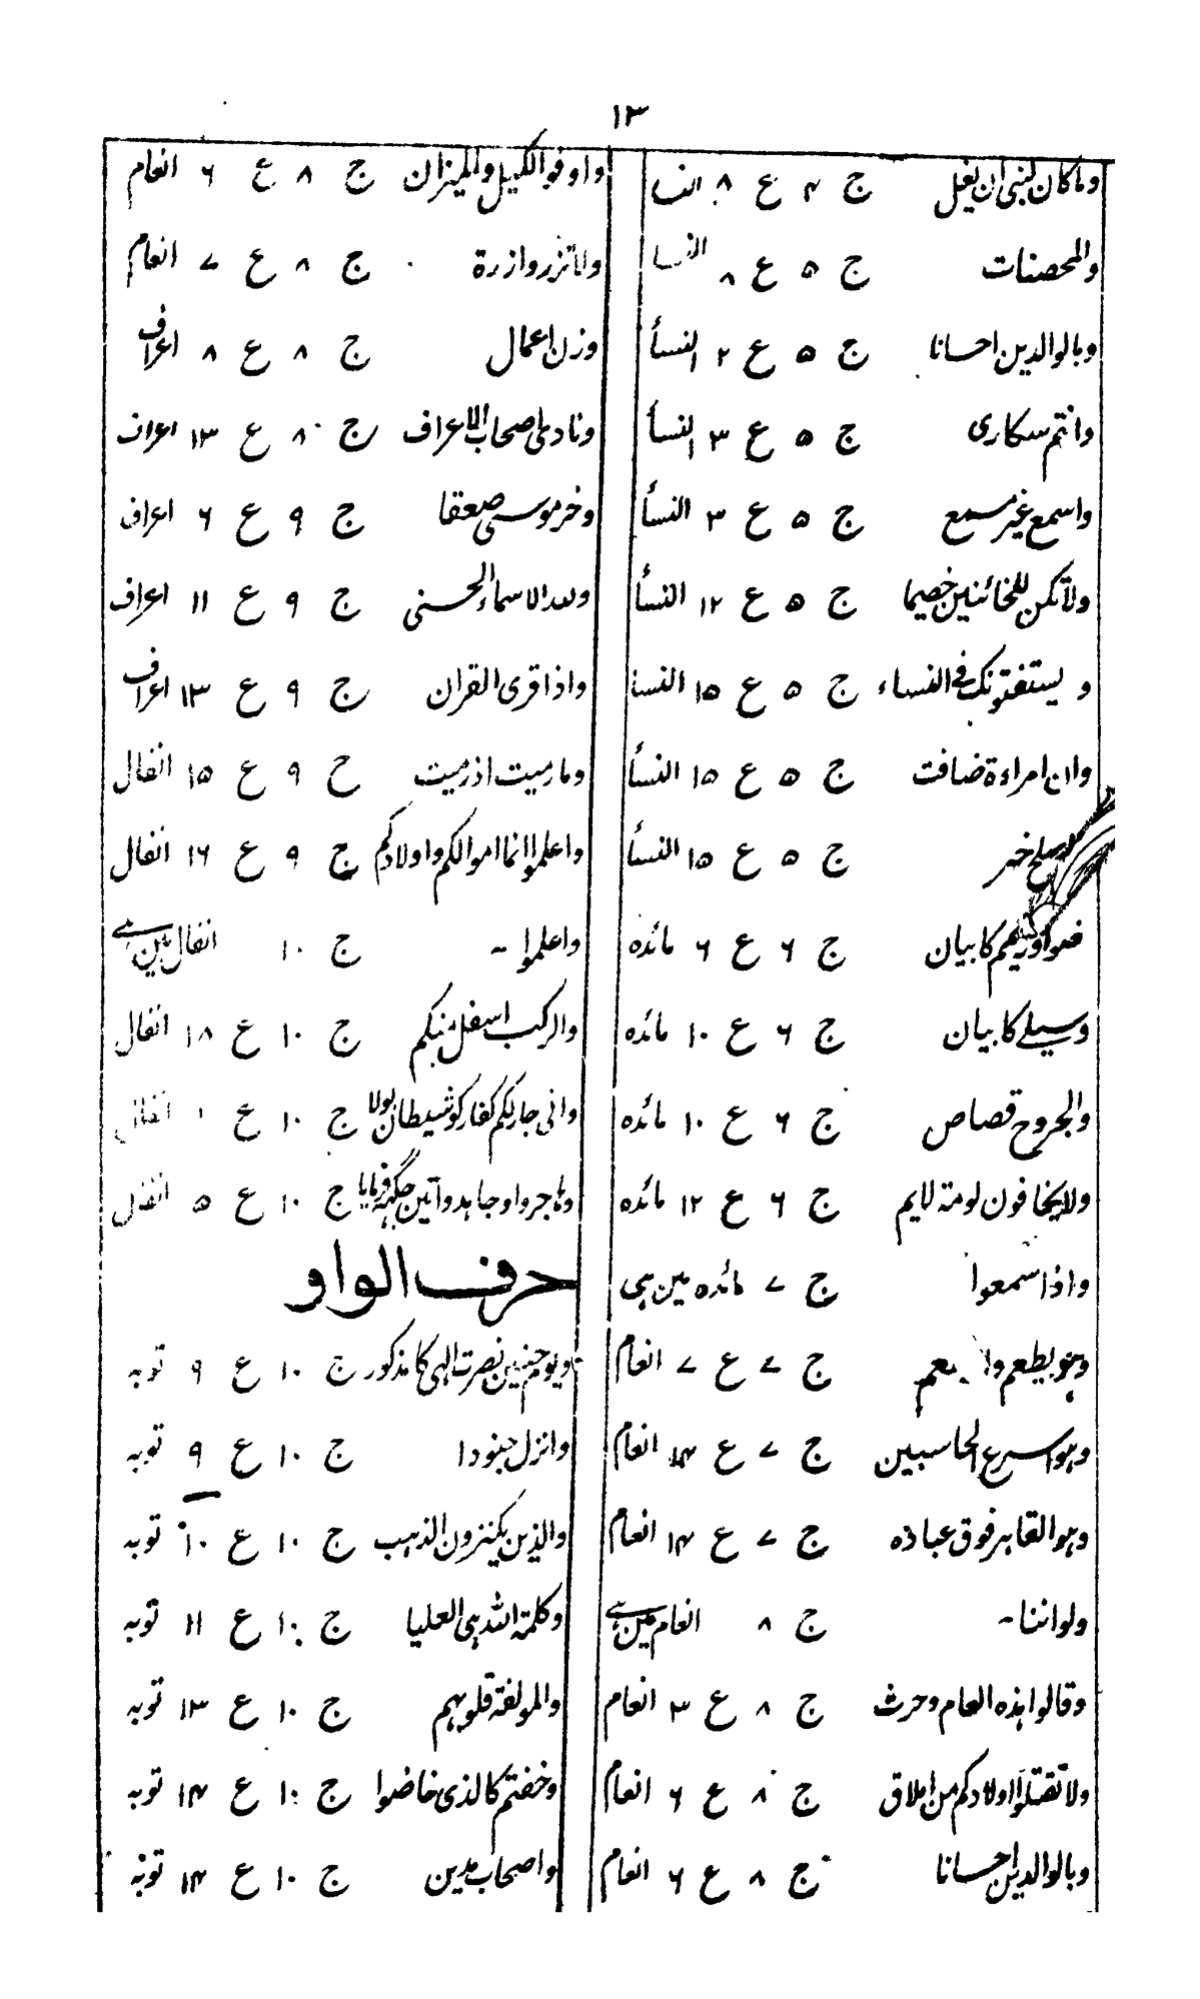 ۱۳
وماکان لنبی ان یغل ج ۴ ع ۸ النسا
والمحصنات ج ۵ ع ۸ النسا
وبالوالدین احسانا ج ۵ ع ۲ النسأ
وانتم سکاری ج ۵ ع ۳ النسأ
واسمع غیر مسمع ج ۵ ع ۳ النسأ
ولاتکن للخائنین خصیما ج ۵ ع ۱۲ النسأ
و یستفتونک فے النساء ج ۵ ع ۱۵ النسا
وان امراءة ضافت ج ۵ ع ۱۵ النسأ
خیر ج ۵ ع ۱۵ النسأ
کا بیان ج ۶ ع ۶ مائدہ
وسیلے کا بیان ج ۶ ع ۱۰ مائدہ
والجروح قصاص ج ۶ ع ۱۰ مائدہ
ولایخافون لومة لایم ج ۶ ع ۱۲ مائدہ
واذا سمعوا ج ۷ مائدہ مین ہی
وہو یطعم ولا یطعم ج ۷ ع ۷ انعام
وہو اسرع الحاسبین ج ۷ ع ۱۴ انعام
وہو القاہر فوق عبادہ ج ۷ ع ۱۴ انعام
ولو اننا ۔ ج ۸ انعام مین ہے
وقالوا ہذہ انعام وحرث ج ۸ ع ۳ انعام
ولا تقتلوا اولادکم من املاق ج ۸ ع ۶ انعام
وبالوالدین احسانا ج ۸ ع ۶ انعام
واوفوالکیل والمیزان ج ۸ ع ۶ انعام
ولاتزر وازرة ج ۸ ع ۷ انعام
وزن اعمال ج ۸ ع ۸ اعراف
ونادی اصحاب الاعراف ج ۸ ع ۱۳ اعراف
وخر موسی صعقا ج ۹ ع ۶ اعراف
وللہ الاسماء الحسنی ج ۹ ع ۱۱ اعراف
واذا قری القران ج ۹ ع ۱۳ اعراف
ومارمیت اذ رمیت ج ۹ ع ۱۵ انفال
واعلموا انما اموالکم واولادکم ج ۹ ع ۱۶ انفال
واعلموا ۔ ج ۱۰ انفال مین ہے
والرکب اسفل منکم ج ۱۰ ع ۱۸ انفال
وانی جارلکم کفار کو شیطان بولا ج ۱۰ ع ۱ انفال
وہاجروا وجاہدوا تین جگہہ فرمایا ج ۱۰ ع ۵ انفال
حرف الواو
ویوم حنین نصرت الہی کا مذکور ج ۱۰ ع ۹ توبہ
وانزل جنودا ج ۱۰ ع ۹ توبہ
والذین یکنزون الذہب ج ۱۰ ع ۱۰ توبہ
وکلمة اللہ ہی العلیا ج ۱۰ ع ۱۱ توبہ
والمولفة قلوبہم ج ۱۰ ع ۱۳ توبہ
وخضتم کالذی خاضوا ج ۱۰ ع ۱۴ توبہ
واصحاب مدین ج ۱۰ ع ۱۴ توبہ